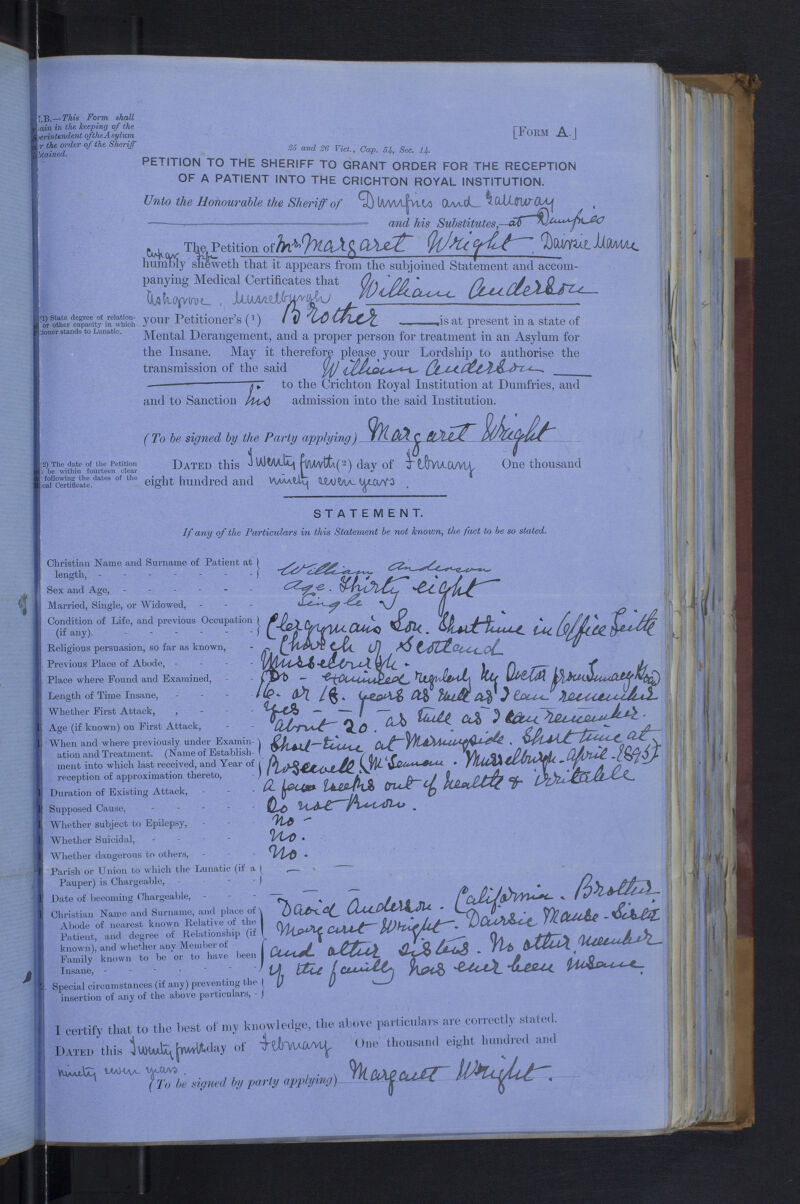 N.B.—This Form shall
in the keeping of the
Superintendent of the Asylum
the order of the Sheriff
[FORM A.]
25 and 26 Vict., Cap. 54, Sec. 14.
PETITION TO THE SHERIFF TO GRANT ORDER FOR THE RECEPTION
OF A PATIENT INTO THE CRICHTON ROYAL INSTITUTION.
Unto the Honourable the Sheriff of Dumfries and Galloway
and his Substitutes, at Dumfries
The Petition of Mrs Margaret Wright Dairsie Manse
Cupar Fife
humbly sheweth that it appears from the subjoined Statement and accom-
panying Medical Certificates that William Anderson
Ashgrove, Musselburgh
(1) State degree of relation-
or other capacity in which
stands to Lunatic.
your Petitioner's (1) Brother is at present in a state of
Mental Derangement, and a proper person for treatment in an Asylum for
the Insane. May it therefore please your Lordship to authorise the
transmission of the said William Anderson
to the Crichton Royal Institution at Dumfries, and
and to Sanction his admission into the said Institution.
(To be signed by the Party applying) Margaret Wright
(2) The date of the Petition
be within fourteen clear
following the dates of the
Certificate.
DATED this Twenty fourth (2) day of February One thousand
eight hundred and ninety seven years.
STATEMENT.
If any of the Particulars in this Statement be not known, the fact to be so stated.
Christian Name and Surname of Patient at
length, - William Anderson
Sex and Age, - Age. Thirty eight
Married, Single, or Widowed, - Single
Condition of Life, and previous Occupation
(if any). Clergyman's Son. Short time in Office Leith
Religious persuasion, so far as known, - Church of Scotland
Previous Place of Abode, - Musselburgh.
Place where Found and Examined, - Do - examined regularly by Doctor from Lunacy Board
Length of Time Insane, - 16 - or 18. years as well as I can remember
Whether First Attack, - Yes - -
Age (if known) on First Attack, - About 20. as well as I can remember.
When and where previously under Examin-
ation and Treatment. (Name of Establish-
ment into which last received, and Year of
reception of approximation thereto, - Short time at Morningside. Short time at
Musselburgh - April - 1895)
Duration of Existing Attack, - A few weeks out of health & irritable
Supposed Cause, - Do not know.
Whether subject to Epilepsy, - No -
Whether Suicidal, - No.
Whether dangerous to others, - No.
Parish or Union to which the Lunatic (if a
Pauper) is Chargeable, -
Date of becoming Chargeable,
Christian Name and Surname, and place of
Abode of nearest known Relative of the
Patient, and degree of Relationship (if
known), and whether any Member of
Family known to be or to have been
Insane, - David Anderson - California - Brother
Margaret Wright - Dairsie Manse - Sister
and other sisters. No other member
of the family has ever been insane.
Special circumstances (if any) preventing the
insertion of any of the above particulars, -
I certify that to the best of my knowledge, the above particulars are correctly stated.
DATED this Twenty fourth day of February One thousand eight hundred and
ninety seven years.
(To be signed by party applying) Margaret Wright.